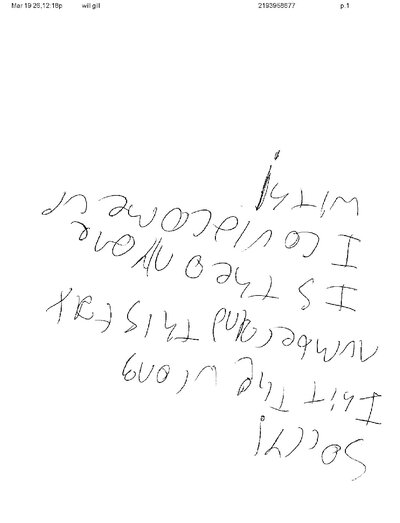 Mar 19 26,12:18p will gill 2193958677 p.1
Sorry!
I hit The wrong
number and this fax
Is The only one
I could come up
with!